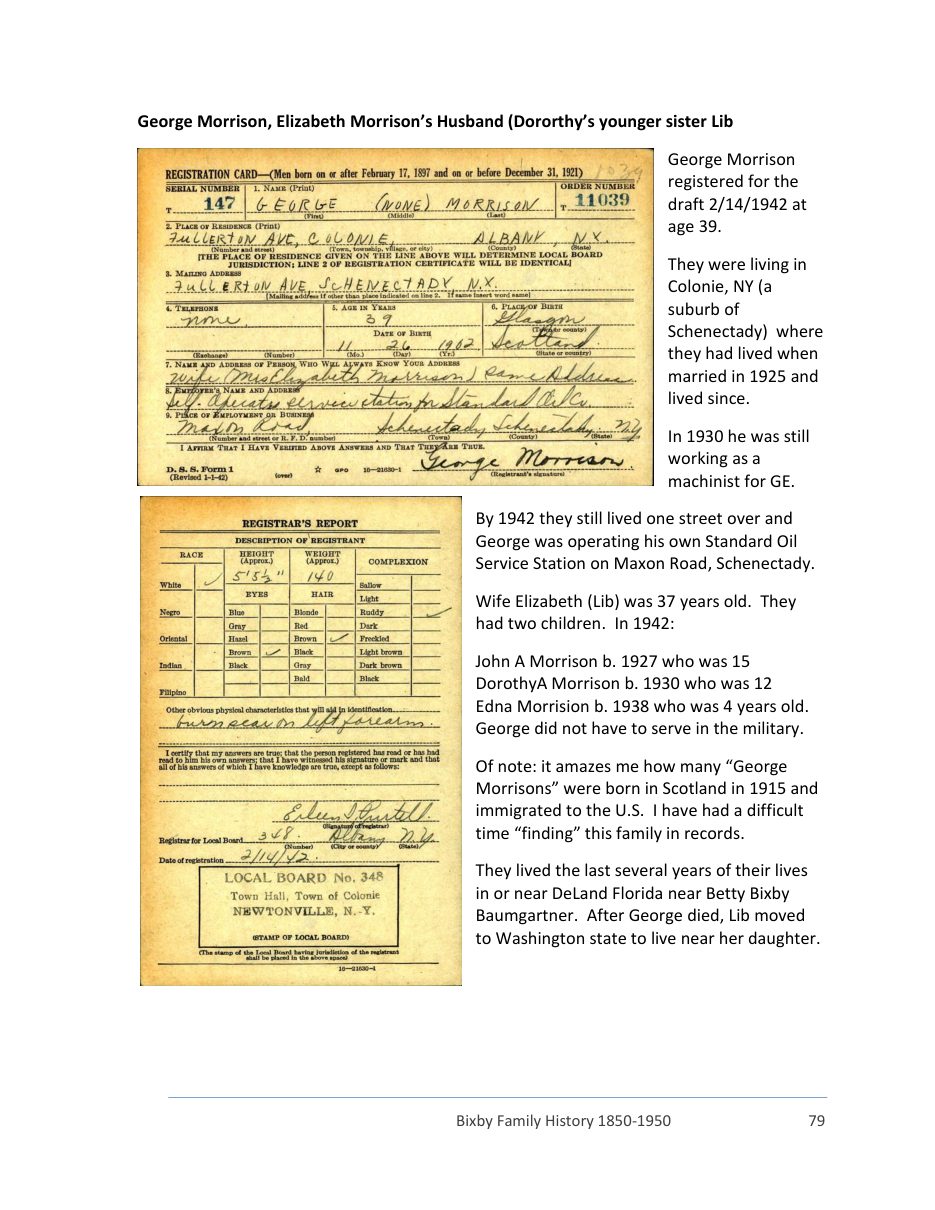 George Morrison, Elizabeth Morrison’s Husband (Dororthy’s younger sister Lib
REGISTRATION CARD—(Men born on or after February 17, 1897 and on or before December 31, 1921) 1039
SERIAL NUMBER 1. NAME (Print) ORDER NUMBER
T 147 GEORGE (NONE) MORRISON T 11039
(First) (Middle) (Last)
2. PLACE OF RESIDENCE (Print)
FULLERTON AVE, COLONIE, ALBANY, N.Y.
(Number and street) (Town, township, village, or city) (County) (State)
[THE PLACE OF RESIDENCE GIVEN ON THE LINE ABOVE WILL DETERMINE LOCAL BOARD
JURISDICTION; LINE 2 OF REGISTRATION CERTIFICATE WILL BE IDENTICAL]
3. MAILING ADDRESS
FULLERTON AVE, SCHENECTADY, N.Y.
[Mailing address if other than place indicated on line 2. If same insert word same]
4. TELEPHONE 5. AGE IN YEARS 6. PLACE OF BIRTH
none 39 Glasgow
(Town or county)
DATE OF BIRTH
11 26 1902 Scotland
(Exchange) (Number) (Mo.) (Day) (Yr.) (State or country)
7. NAME AND ADDRESS OF PERSON WHO WILL ALWAYS KNOW YOUR ADDRESS
wife (Mrs Elizabeth Morrison) same Address
8. EMPLOYER'S NAME AND ADDRESS
Self-Operates service station for Standard Oil Co
9. PLACE OF EMPLOYMENT OR BUSINESS
Maxon Road Schenectady Schenectady N.Y.
(Number and street or R. F. D. number) (Town) (County) (State)
I AFFIRM THAT I HAVE VERIFIED ABOVE ANSWERS AND THAT THEY ARE TRUE.
George Morrison
D. S. S. Form 1 GPO 16—21630-1 (Registrant's signature)
(Revised 1-1-42) (over)
George Morrison
registered for the
draft 2/14/1942 at
age 39.
They were living in
Colonie, NY (a
suburb of
Schenectady) where
they had lived when
married in 1925 and
lived since.
In 1930 he was still
working as a
machinist for GE.
REGISTRAR'S REPORT
DESCRIPTION OF REGISTRANT
RACE HEIGHT (Approx.) WEIGHT (Approx.) COMPLEXION
5'5½" 140
EYES HAIR
White ✓
Negro
Oriental
Indian
Filipino
Blue
Gray
Hazel
Brown ✓
Black
Blonde
Red
Brown ✓
Black
Gray
Bald
Sallow
Light
Ruddy ✓
Dark
Freckled
Light brown
Dark brown
Black
Other obvious physical characteristics that will aid in identification
burn scar on left forearm.
I certify that my answers are true; that the person registered has read or has had
read to him his own answers; that I have witnessed his signature or mark and that
all of his answers of which I have knowledge are true, except as follows:
Eileen
(Signature of registrar)
Registrar for Local Board 348 Albany N.Y.
(Number) (City or county) (State)
Date of registration 2/14/42.
LOCAL BOARD No. 348
Town Hall, Town of Colonie
NEWTONVILLE, N.-Y.
(STAMP OF LOCAL BOARD)
(The stamp of the Local Board having jurisdiction of the registrant
shall be placed in the above space)
16—21630-1
By 1942 they still lived one street over and
George was operating his own Standard Oil
Service Station on Maxon Road, Schenectady.
Wife Elizabeth (Lib) was 37 years old. They
had two children. In 1942:
John A Morrison b. 1927 who was 15
DorothyA Morrison b. 1930 who was 12
Edna Morrision b. 1938 who was 4 years old.
George did not have to serve in the military.
Of note: it amazes me how many “George
Morrisons” were born in Scotland in 1915 and
immigrated to the U.S. I have had a difficult
time “finding” this family in records.
They lived the last several years of their lives
in or near DeLand Florida near Betty Bixby
Baumgartner. After George died, Lib moved
to Washington state to live near her daughter.
Bixby Family History 1850-1950 79